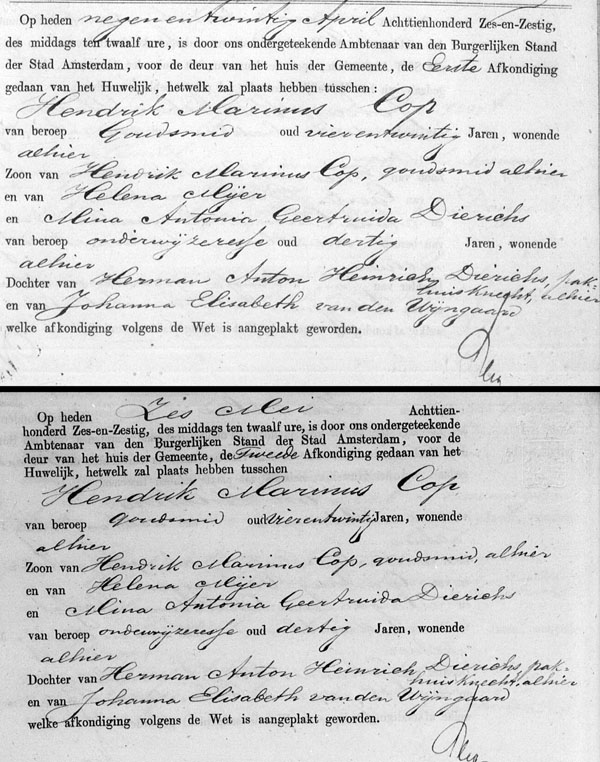 Op heden negenentwintig April Achttienhonderd Zes-en-Zestig,
des middags ten twaalf ure, is door ons ondergeteekende Ambtenaar van den Burgerlijken Stand
der Stad Amsterdam, voor de deur van het huis der Gemeente, de Eerste Afkondiging
gedaan van het Huwelijk, hetwelk zal plaats hebben tusschen:
Hendrik Marinus Cop
van beroep Goudsmid oud vierentwintig Jaren, wonende
alhier
Zoon van Hendrik Marinus Cop, goudsmid alhier
en van Helena Mijer
en Mina Antonia Geertruida Dierichs
van beroep onderwijzeresse oud dertig Jaren, wonende
alhier
Dochter van Herman Anton Heinrich Dierichs, pak-
huisknecht, alhier
en van Johanna Elisabeth van den Wijngaard
welke afkondiging volgens de Wet is aangeplakt geworden.
Op heden Zes Mei Achttien-
honderd Zes-en-Zestig, des middags ten twaalf ure, is door ons ondergeteekende
Ambtenaar van den Burgerlijken Stand der Stad Amsterdam, voor de
deur van het huis der Gemeente, de Tweede Afkondiging gedaan van het
Huwelijk, hetwelk zal plaats hebben tusschen
Hendrik Marinus Cop
van beroep goudsmid oud vierentwintig Jaren, wonende
alhier
Zoon van Hendrik Marinus Cop, goudsmid, alhier
en van Helena Mijer
en Mina Antonia Geertruida Dierichs
van beroep onderwijzeresse oud dertig Jaren, wonende
alhier
Dochter van Herman Anton Heinrich Dierichs, pak-
huisknecht, alhier
en van Johanna Elisabeth van den Wijngaard
welke afkondiging volgens de Wet is aangeplakt geworden.